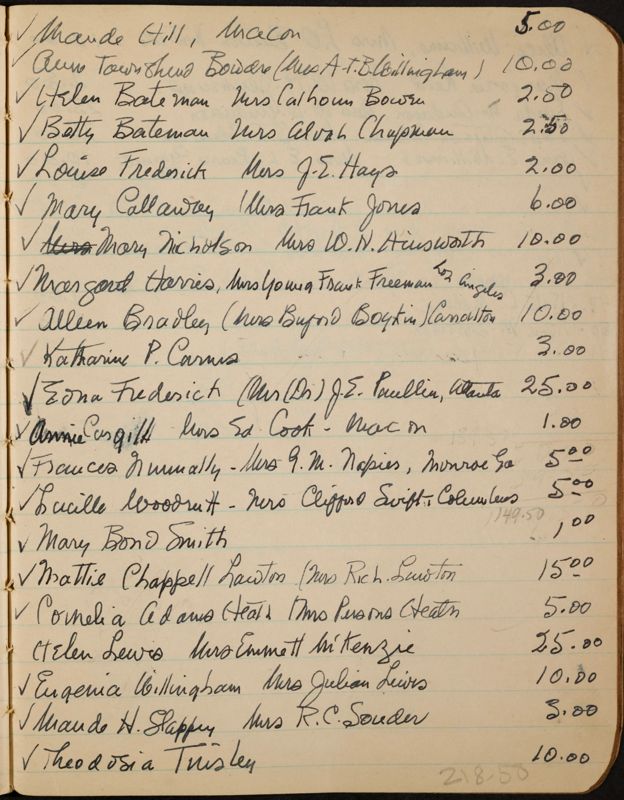 ✓ Maude Hill, Macon 5.00
Anne Townshend Bowdre (Mrs A.T.B. Willingham) 10.00
✓ Helen Bateman Mrs Calhoun Bowen 2.50
✓ Betty Bateman Mrs Alvah Chapman 2.50
✓ Louise Frederick Mrs J.E. Hays 2.00
✓ Mary Callaway (Mrs Frank Jones 6.00
✓ Mrs Mary Nicholson Mrs W.N. Ainsworth 10.00
✓ Margaret Harris, Mrs Young Frank Freeman Los Angeles 3.00
✓ Alleen Bradley (Mrs Buford Boykin) Carrollton 10.00
✓ Katharine P. Carnes 3.00
✓ Edna Frederick (Mrs (Dr) J.E. Paullin, Atlanta 25.00
✓ Annie Cargill Mrs Ed Cook - Macon 1.00
✓ Frances Nunnally - Mrs G.M. Napier, Monroe Ga 5.00
✓ Lucille Woodruff - Mrs Clifford Swift, Columbus 5.00
149.50
✓ Mary Bond Smith 1.00
✓ Mattie Chappell Lawton (Mrs Rich. Lawton 15.00
✓ Cornelia Adams Heath (Mrs Persons Heath 5.00
Helen Lewis Mrs Emmett McKenzie 25.00
✓ Eugenia Willingham Mrs Julian Lewis 10.00
✓ Maude H. Slappey Mrs R.C. Souder 3.00
✓ Theodosia Tinsley 10.00
218.50